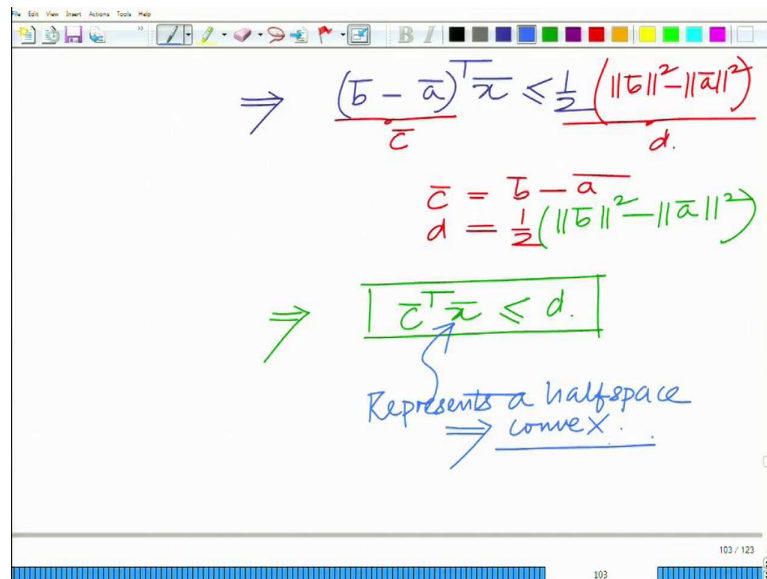 File Edit View Insert Actions Tools Help
B I
⇒ (b̅ − a̅)ᵀ x̅ ≤ 1/2 (||b̅||² − ||a̅||²)
c̅ d.
c̅ = b̅ − a̅
d = 1/2 (||b̅||² − ||a̅||²)
⇒ c̅ᵀ x̅ ≤ d.
Represents a halfspace
⇒ convex.
103 / 123
103